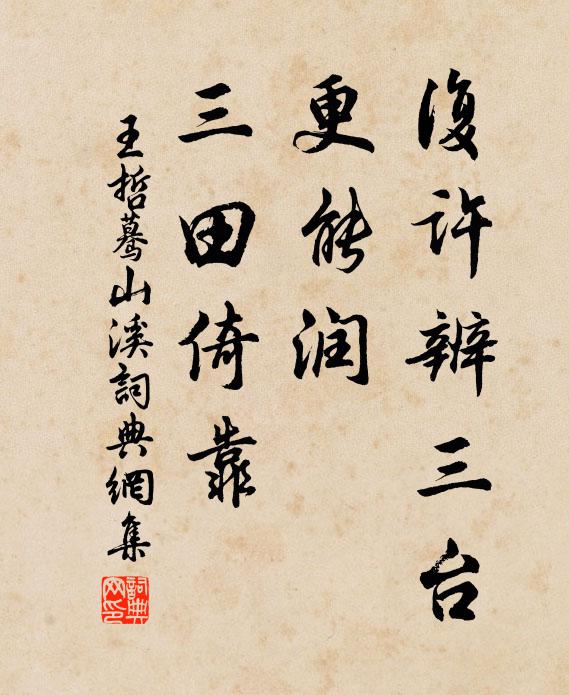 復许辨三台
更能润
三田倚靠
王哲蓦山溪詞典網集
詞典網印